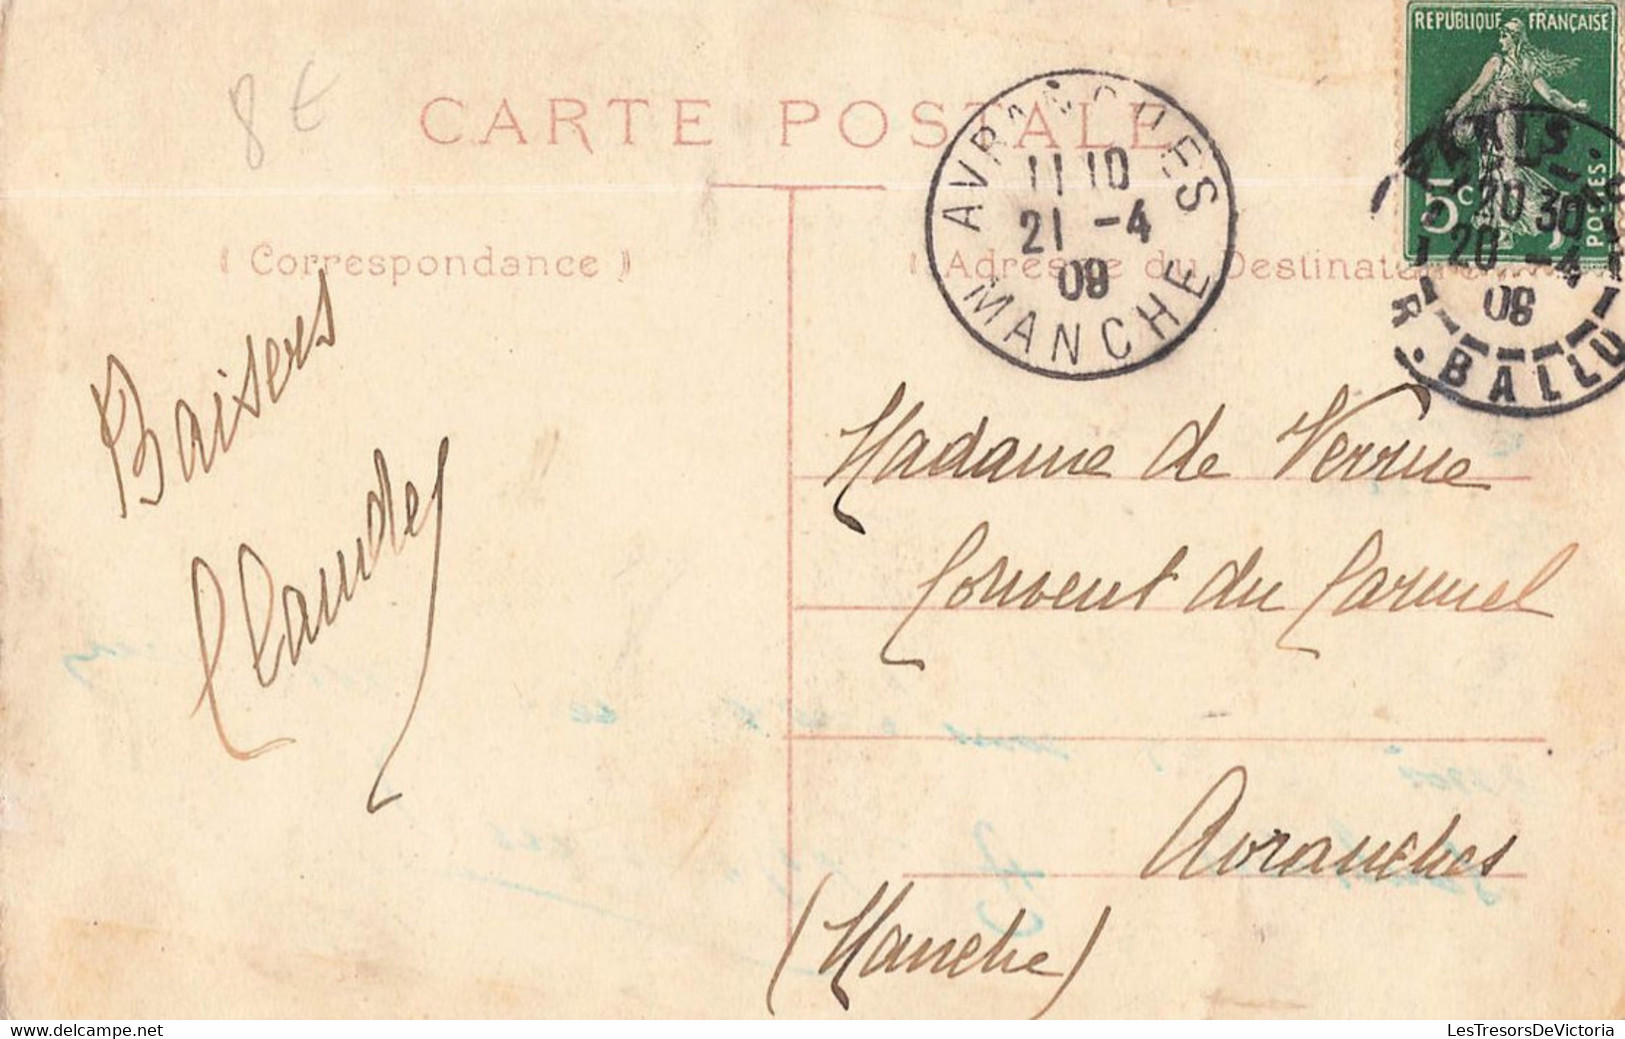 8€
CARTE POSTALE
RÉPUBLIQUE FRANÇAISE
5c
POSTES
AVRANCHES
11 10
21 -4
09
MANCHE
PARIS
20 30
20 -4
09
R. BALLU
(Correspondance)
(Adresse du Destinataire
Baisers
Claude
Madame de Verrue
Couvent du Carmel
Avranches
(Manche)
delcampe.net
LesTresorsDeVictoria